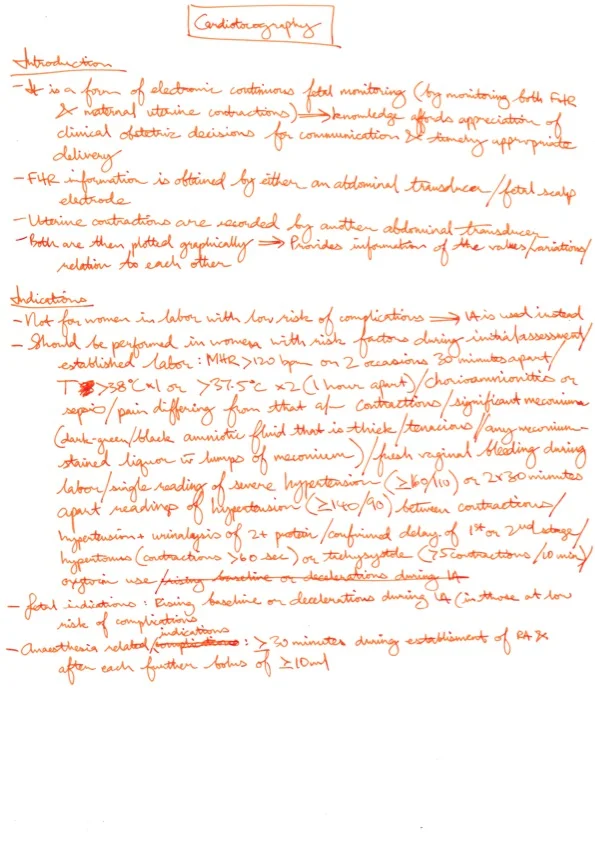 Cardiotocography
Introduction
- It is a form of electronic continuous fetal monitoring (by monitoring both FHR
& maternal uterine contractions) ⇒ knowledge affords appreciation of
clinical obstetric decisions for communication & timely appropriate
delivery
- FHR information is obtained by either an abdominal transducer/fetal scalp
electrode
- Uterine contractions are recorded by another abdominal transducer
- Both are then plotted graphically ⇒ Provides information of the values/variations/
relation to each other
Indications
- Not for women in labor with low risk of complications ⇒ IA is used instead
- Should be performed in women with risk factors during initial assessment/
established labor: MHR >120 bpm on 2 occasions 30 minutes apart/
T >38°C x1 or >37.5°C x2 (1 hour apart)/chorioamnionitis or
sepsis/pain differing from that a/w contractions/significant meconium
(dark-green/black amniotic fluid that is thick/tenacious/any meconium-
stained liquor w lumps of meconium)/fresh vaginal bleeding during
labor/single reading of severe hypertension (≥160/110) or 2x30 minutes
apart readings of hypertension (≥140/90) between contractions/
hypertension + urinalysis of 2+ protein/confirmed delay of 1st or 2nd stage/
hypertonus (contractions >60 sec) or tachysystole (≥5 contractions/10 min)/
oxytocin use/rising baseline or decelerations during IA
- Fetal indications: Rising baseline or decelerations during IA (in those at low
risk of complications
- Anaesthesia related/complications indications: ≥30 minutes during establisment of RA &
after each further bolus of ≥10ml